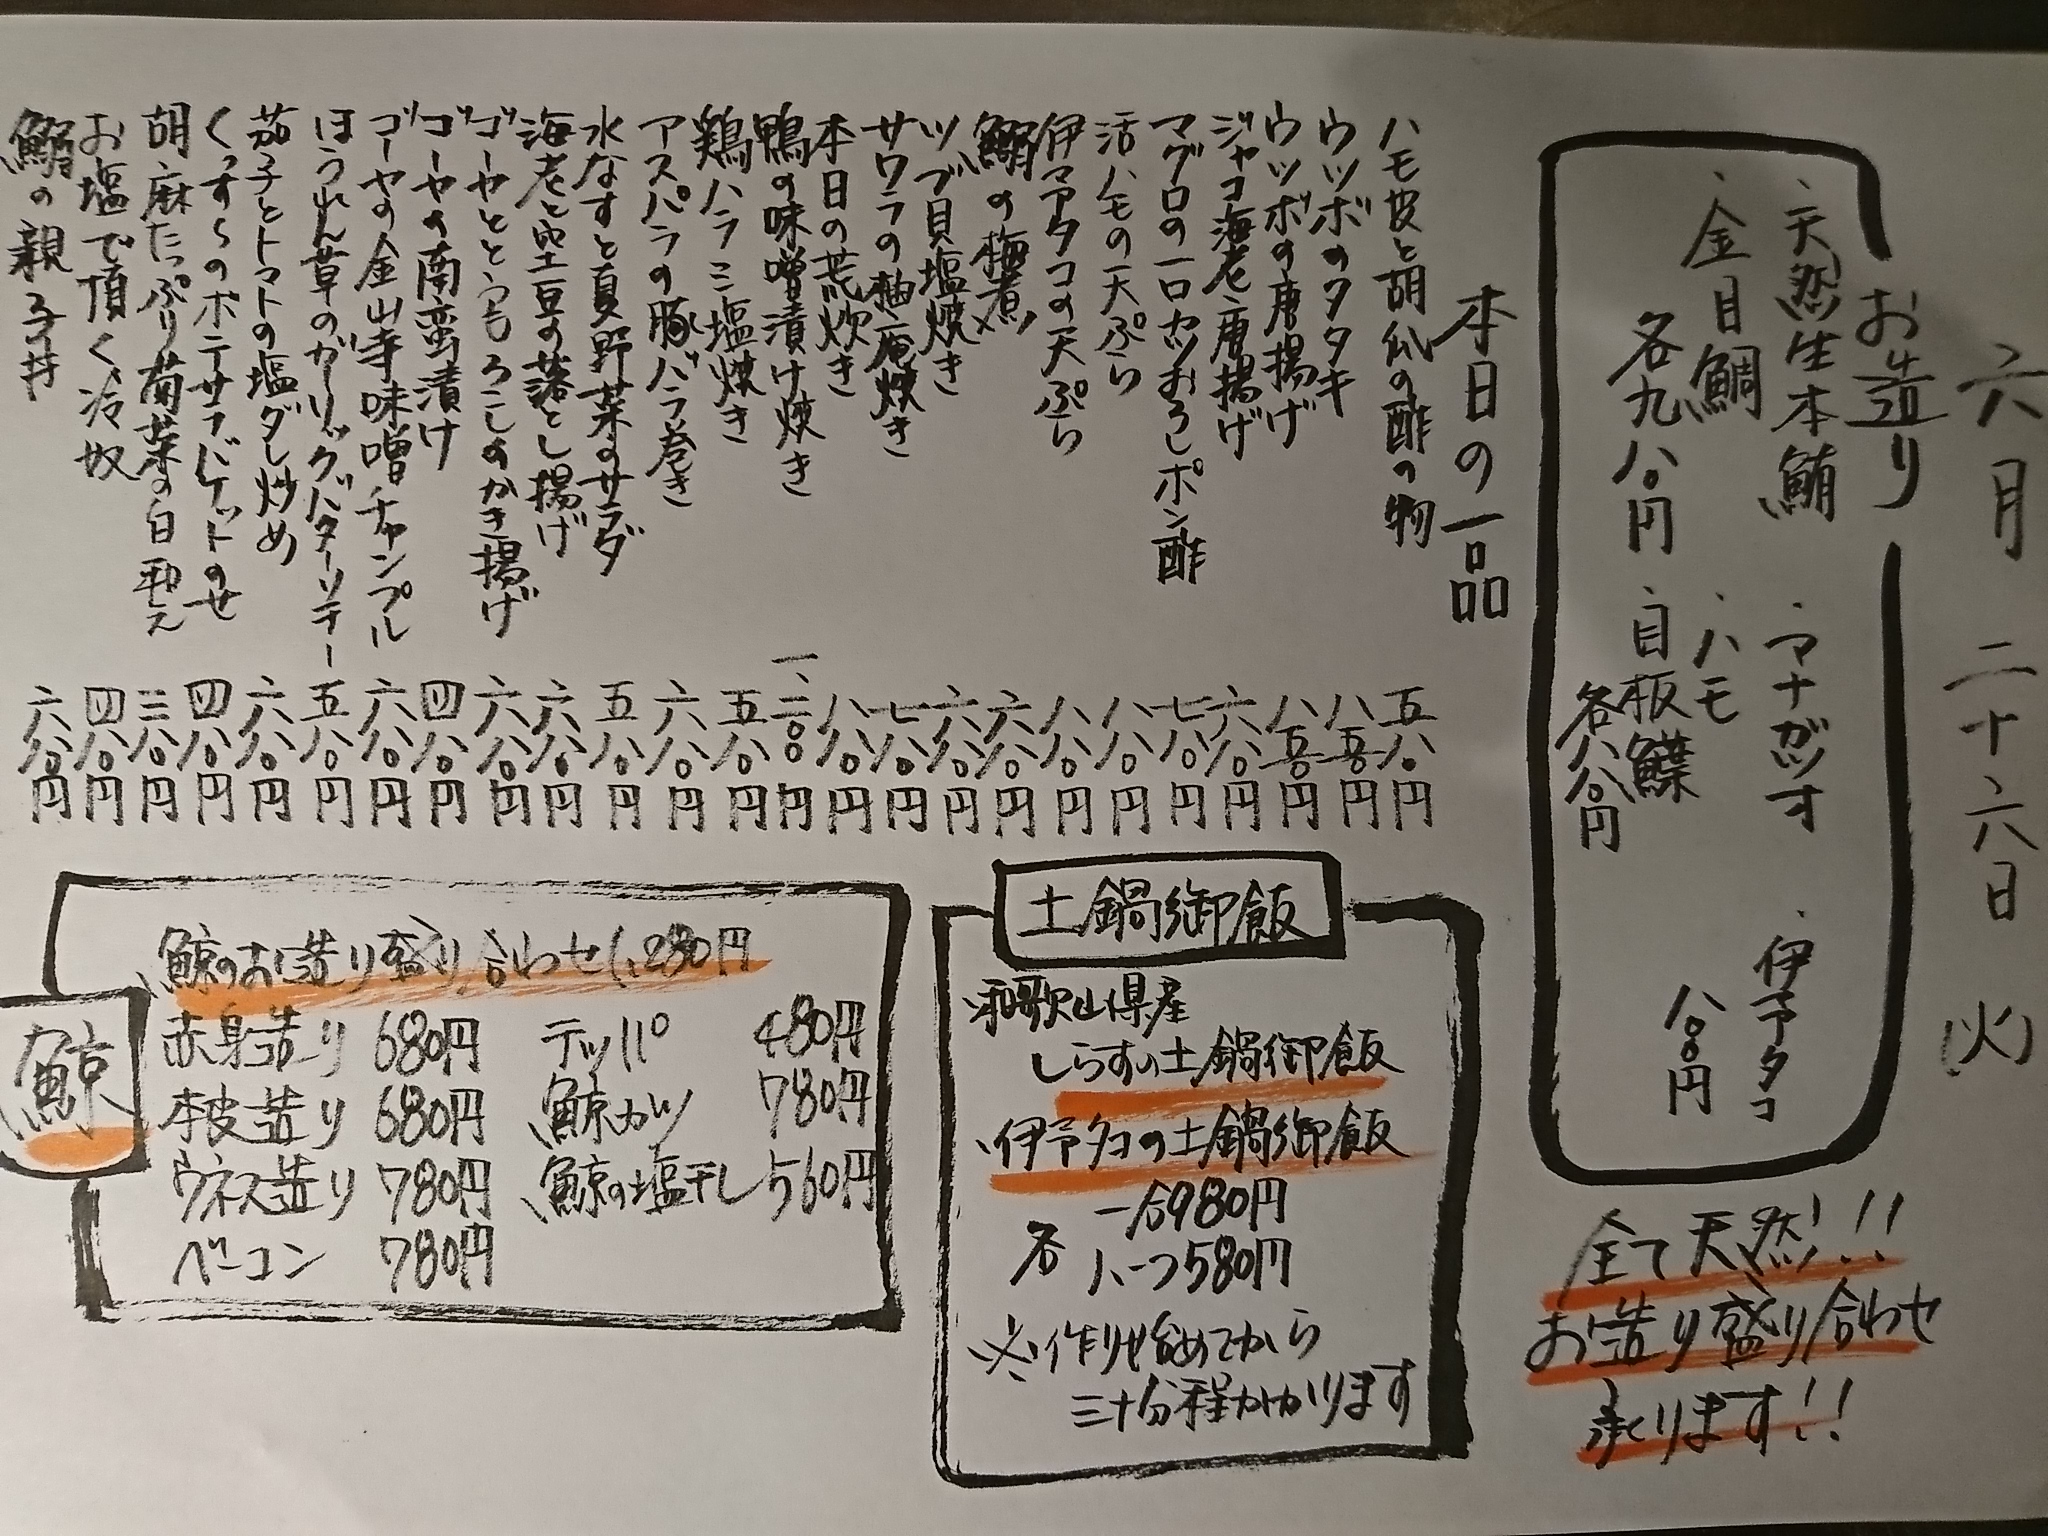 六月二十六日(火)
お造り
・天然生本鮪
・金目鯛
各九八〇円
・マナガツオ
・ハモ
・目板鰈
各八八〇円
・伊予タコ
八八〇円
全て天然!!
お造り盛り合わせ
承ります!!
本日の一品
ハモ皮と胡瓜の酢の物 五八〇円
ウツボのタタキ 八五〇円
ウツボの唐揚げ 八五〇円
ジャコ海老唐揚げ 六八〇円
マグロの一口カツおろしポン酢 七八〇円
活ハモの天ぷら 八八〇円
伊予タコの天ぷら 八八〇円
鰯の梅煮 六八〇円
ツブ貝塩焼き 六八〇円
サワラの柚庵焼き 七八〇円
本日の荒炊き 八八〇円
鴨の味噌漬け焼き 一二〇〇円
鶏ハラミ塩焼き 五八〇円
アスパラの豚バラ巻き 六八〇円
水なすと夏野菜のサラダ 五八〇円
海老と空豆の落とし揚げ 六八〇円
ゴーヤととうもろこしのかき揚げ 六八〇円
ゴーヤの南蛮漬け 四八〇円
ゴーヤの金山寺味噌チャンプル 六八〇円
ほうれん草のガーリックバターソテー 五八〇円
茄子とトマトの塩ダレ炒め 六八〇円
くずしのポテサラバゲットのせ 四八〇円
胡麻たっぷり菊菜の白和え 三八〇円
お塩で頂く冷奴 四八〇円
鰯の親子丼 六八〇円
土鍋御飯
・和歌山県産
しらすの土鍋御飯
・伊予タコの土鍋御飯
各 一合980円
ハーフ580円
※作り始めてから
三十分程かかります
鯨
鯨のお造り盛り合わせ1,280円
赤身造り 680円
本皮造り 680円
ウネス造り 780円
ベーコン 780円
テッパ 480円
鯨カツ 780円
鯨の塩干し 560円